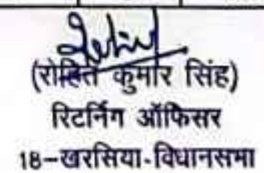 (रोहित कुमार सिंह)
रिटर्निंग ऑफिसर
18-खरसिया-विधानसभा